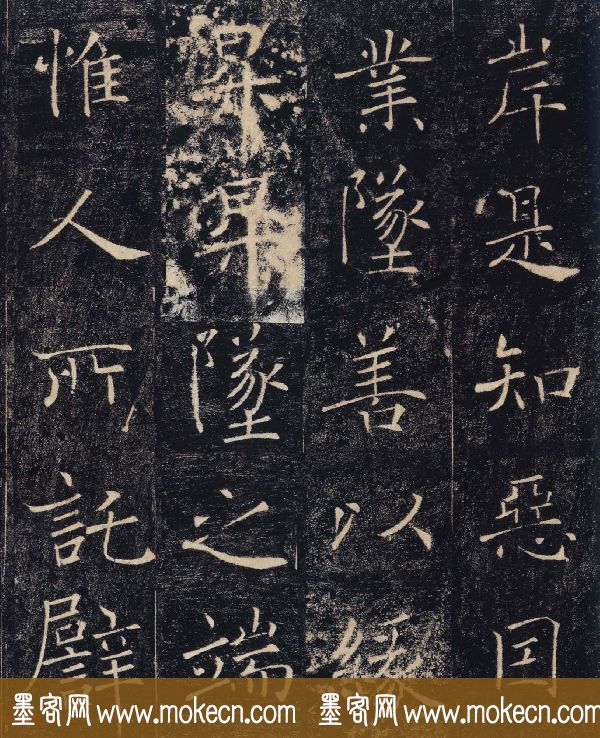 岸是知惡因
業墜善以緣
昇昇墜之端
惟人所託譬
墨客网 www.mokecn.com 墨客网 www.mokecn.com